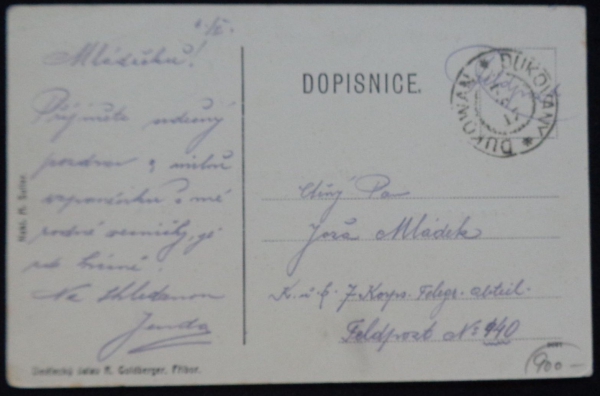 Mládečku!
Přijměte srdečný
pozdrav a milou
vzpomínku z mé
rodné vesničky, jež
Na shledanou
Jenda
Nakl. M. Sutor.
Světlotisk ústav R. Goldberger, Příbor.
DOPISNICE.
DUKOVANY * DUKOWAN *
Ctěný Pan
Joža Mládek
K. u k. 7 Korps. Telegr. abteil.
Feldpost No 440
900-